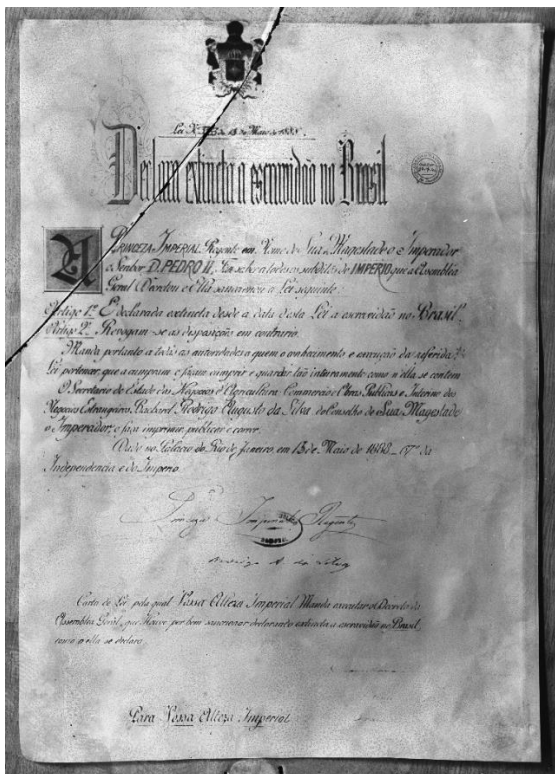 Lei N.º 3353 de 13 de Maio de 1888.
Declara extincta a escravidão no Brasil
A PRINCEZA IMPERIAL, Regente em Nome de Sua Magestade o Imperador
o Senhor D. PEDRO II, Faz saber a todos os subditos do IMPERIO que a Assembléa
Geral Decretou e Ella sanccionou a Lei seguinte:
Artigo 1.º É declarada extincta desde a data desta Lei a escravidão no Brasil.
Artigo 2.º Revogam-se as disposições em contrario.
Manda portanto a todas as autoridades a quem o conhecimento e execução da referida
Lei pertencer, que a cumpram e façam cumprir e guardar tão inteiramente como n'ella se contem.
O Secretario de Estado dos Negocios d'Agricultura, Commercio e Obras Publicas e Interino dos
Negocios Estrangeiros, Bacharel Rodrigo Augusto da Silva do Conselho de Sua Magestade
o Imperador, o faça imprimir, publicar e correr.
Dada no Palacio do Rio de Janeiro, em 13 de Maio de 1888 - 67º da
Independencia e do Imperio.
Princeza Imperial Regente
Rodrigo A. da Silva
Carta de Lei, pela qual Vossa Alteza Imperial Manda executar o Decreto da
Assembléa Geral, que Houve por bem sanccionar declarando extincta a escravidão no Brasil,
como n'ella se declara.
Para Vossa Alteza Imperial.